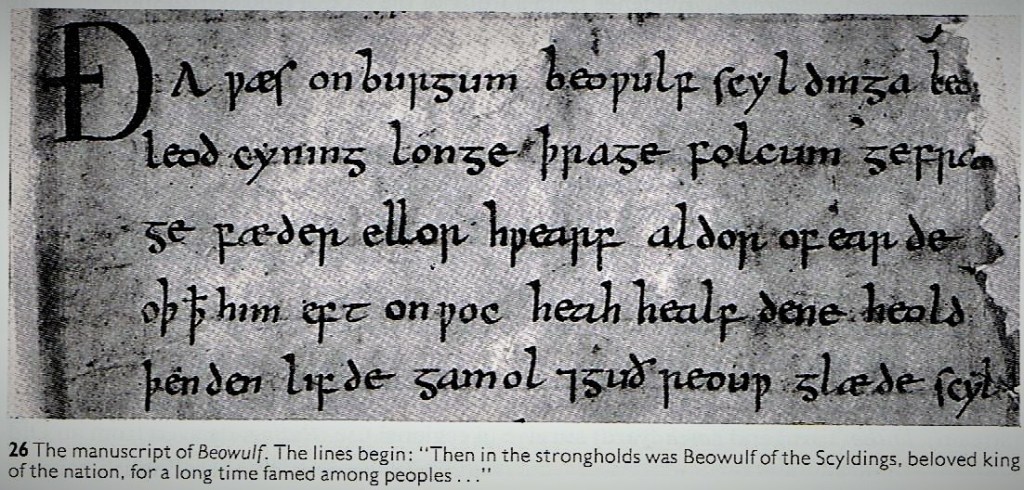 ÐA ƿæſ onburgum beoƿulf ſcẏldinga leo
leod cẏning longe þrage folcum gefræ
ge fæder ellor hƿearf aldor of earde
oþꝥ him eft onƿoc heah healfdene heold
þenden lifde gamol ⁊guð reouƿ glæde ſcẏl
26 The manuscript of Beowulf. The lines begin: “Then in the strongholds was Beowulf of the Scyldings, beloved king
of the nation, for a long time famed among peoples . . .”